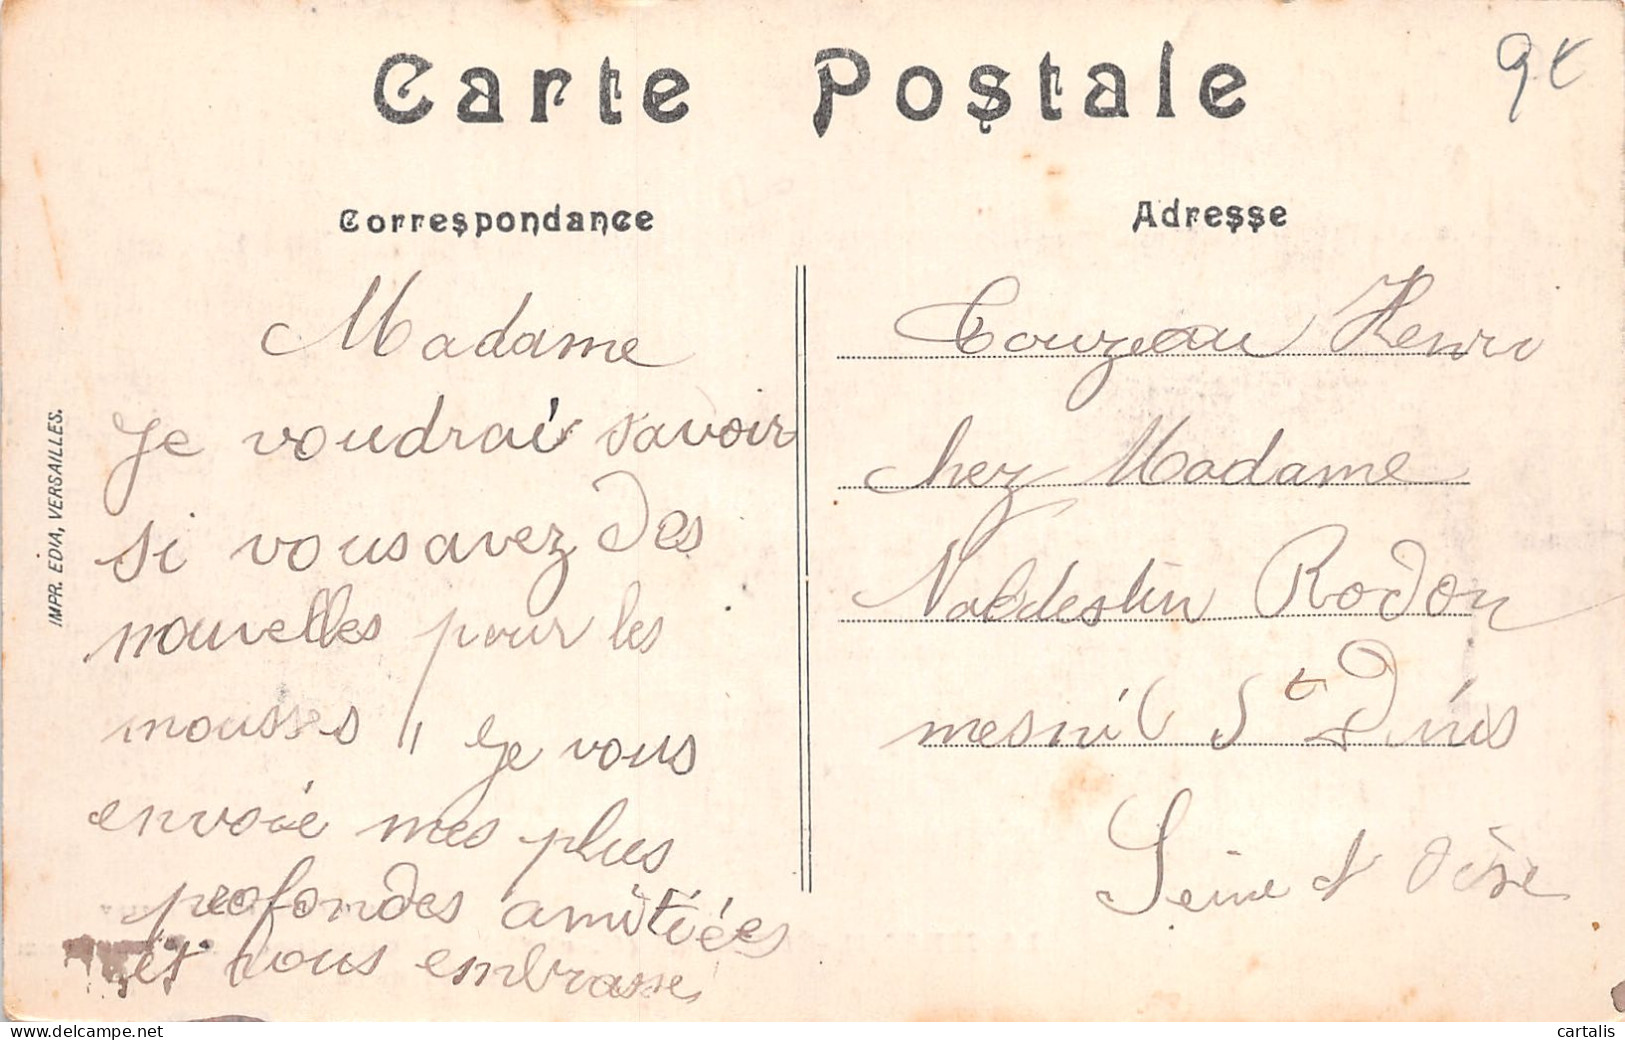 Carte Postale
9€
Correspondance
Adresse
Madame
Je voudrai savoir
si vous avez des
nouvelles pour les
mousses " Je vous
envoie mes plus
profondes amitiées
et vous embrasse
Couzeau Henri
chez Madame
Rodon
mesnil St Dinis
Seine et Oise
IMPR. EDIA, VERSAILLES.
delcampe.net
cartalis